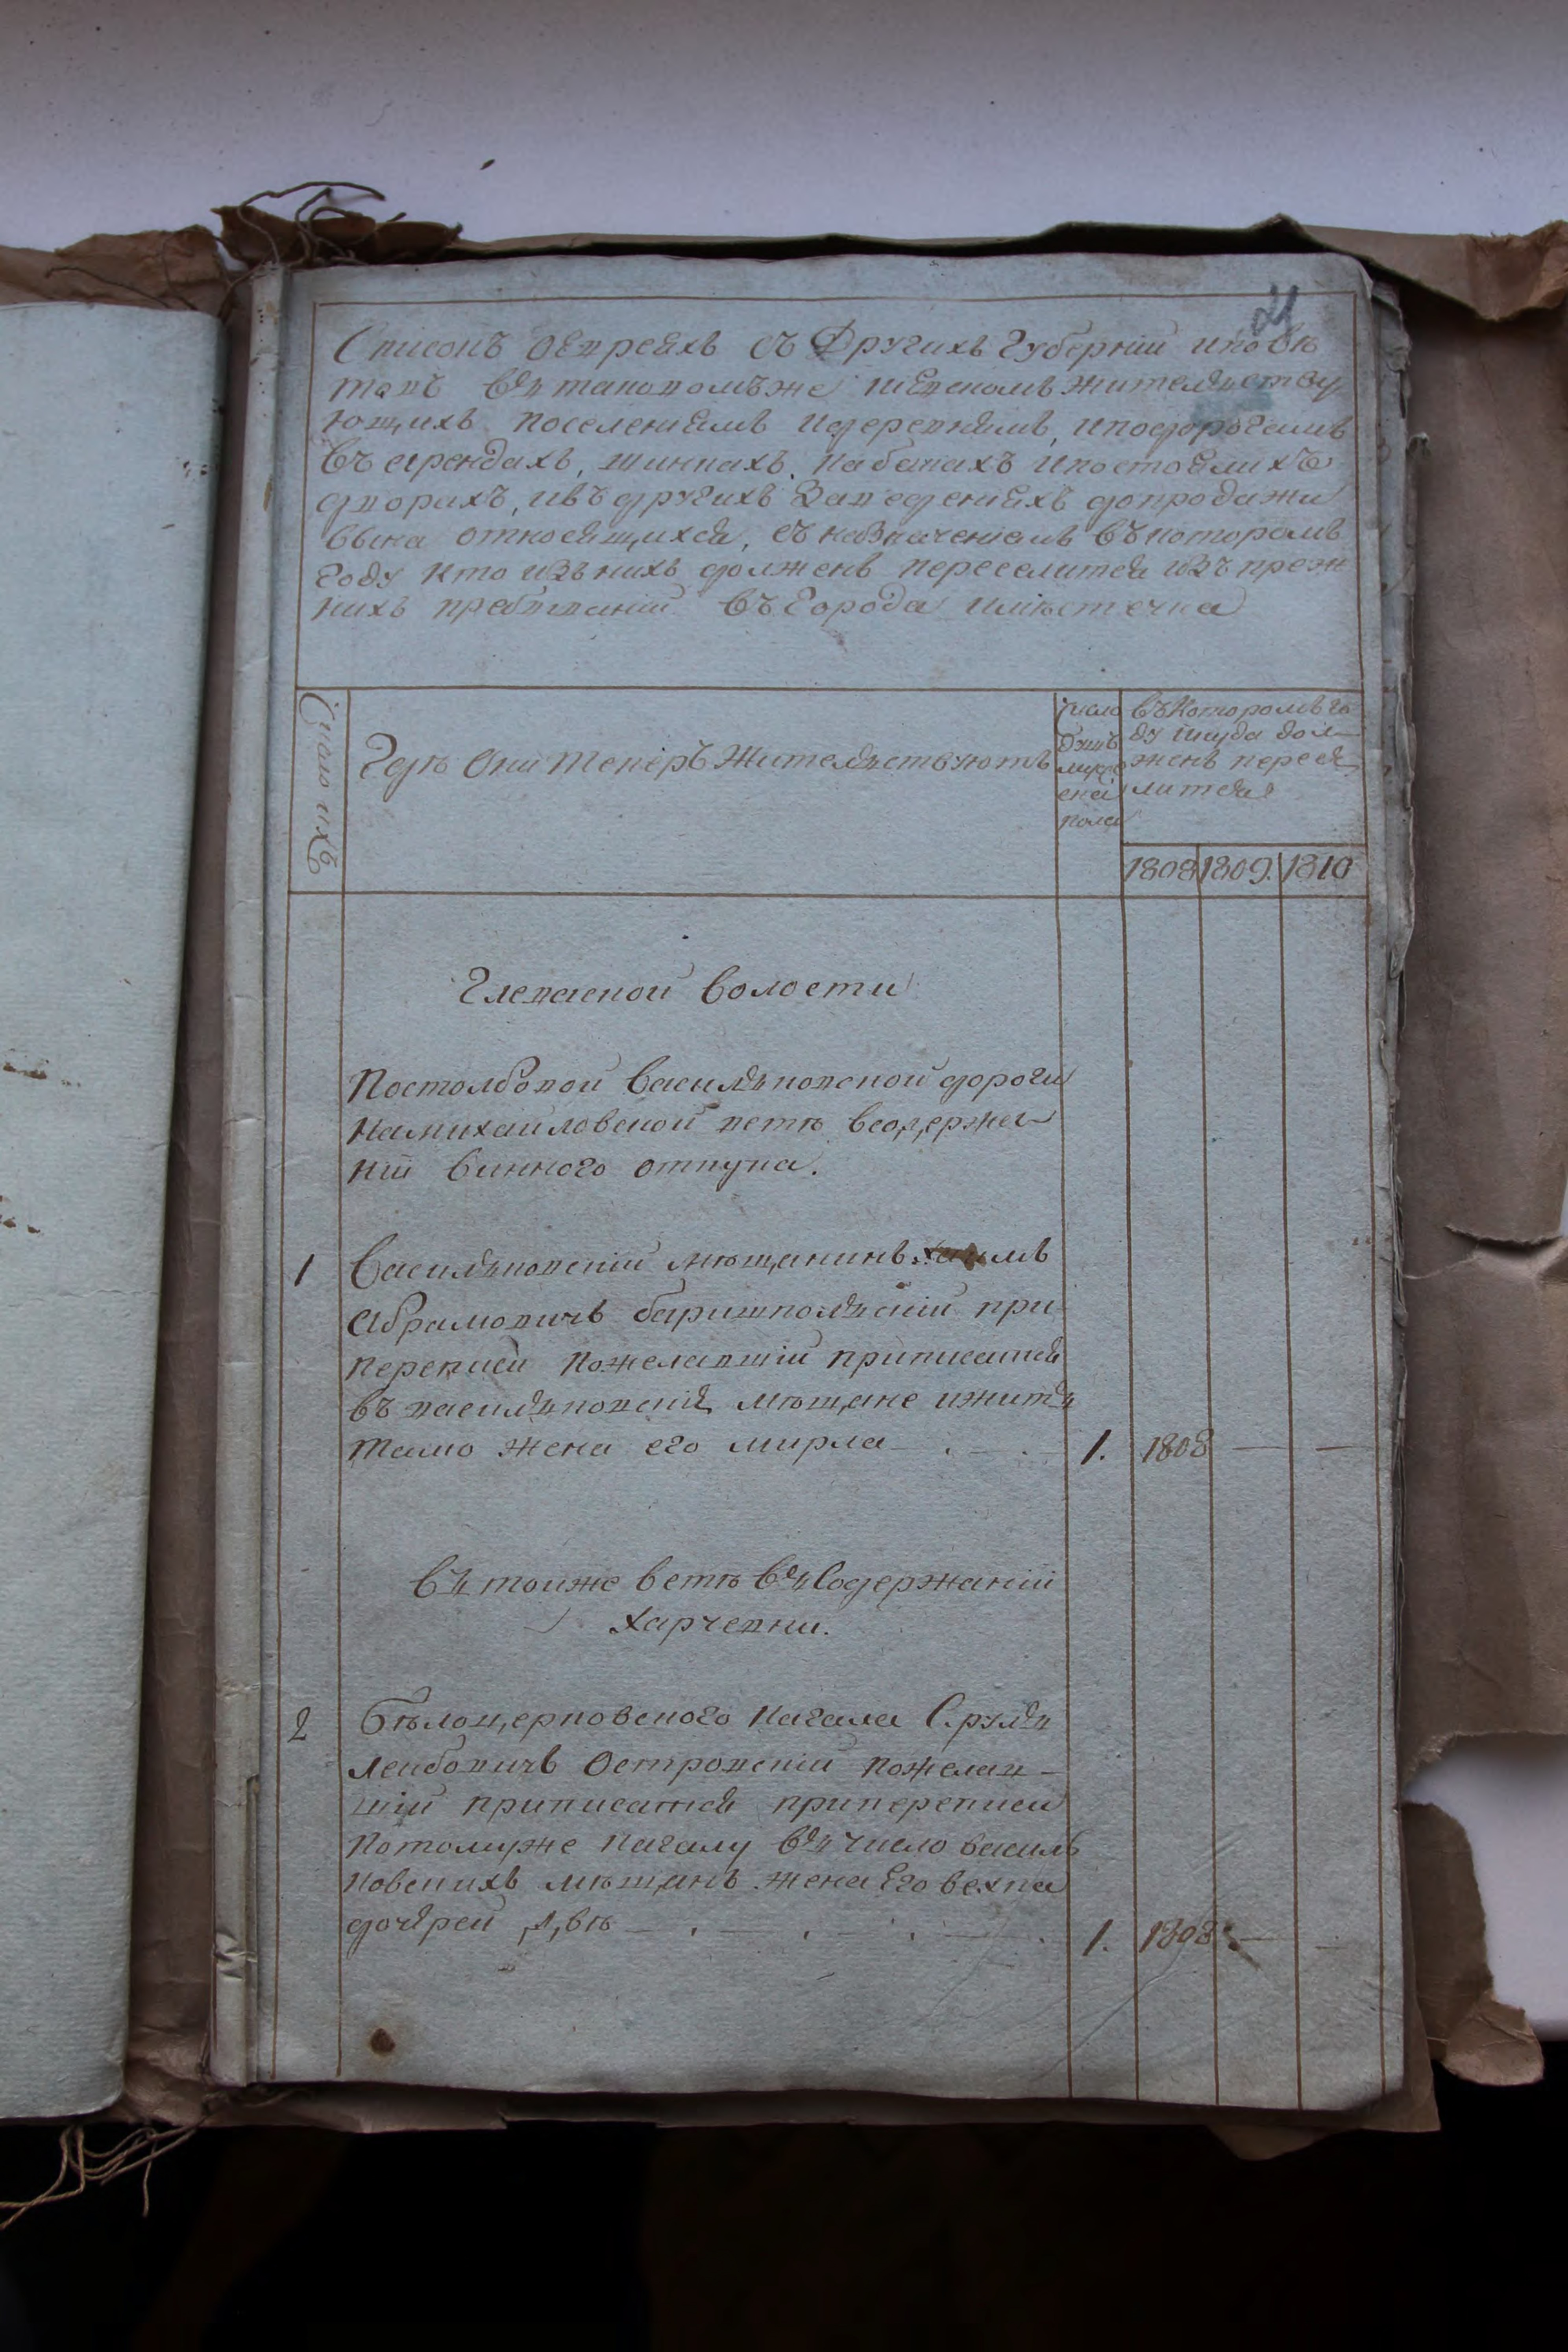 Списокъ оевреяхъ съ Другихъ Губерній и повѣ
товъ въ таковомъже иевскомъ жительству
ющихъ поселеніямъ идеревнямъ, иподорогамъ
въ арендахъ, шинкахъ, кабакахъ ипостоялихъ
дворахъ, ивъ другихъ Заведеніяхъ допродажи
вына относящихся, съ назначеніемъ въ которомъ
году кто изъ нихъ долженъ переселится изъ преж
нихъ пребываній въ Города имѣстечка
24
Число ихъ
Где Они Теперъ Жительствуютъ
число душъ мужеска пола
въ Которомъ го
ду икуда дол
женъ пересе
лится
1808 1809. 1810
Глеваской волости
Постолбовой Васильковской дороги
на михайловской ветѣ всодержа
ніи винного откупа.
1 Васильковскій мѣщанинъ Хаимъ
Абрамовичъ баришпольскій при
переписи пожелавшій приписатся
въ васильковскія мѣщане ижить
тамо жена его мирла 1. 1808 — —
въ тойже ветѣ въ Содержаніи
харчевни.
2 Бѣлоцерковского кагала Сруль
лейбовичъ Островскій пожелав-
шій приписатся припереписи
потомуже кагалу въ число василь
ковскихъ мѣщанъ жена Его вехна
дочерей двѣ — . — . — . — . 1. 1808 — —